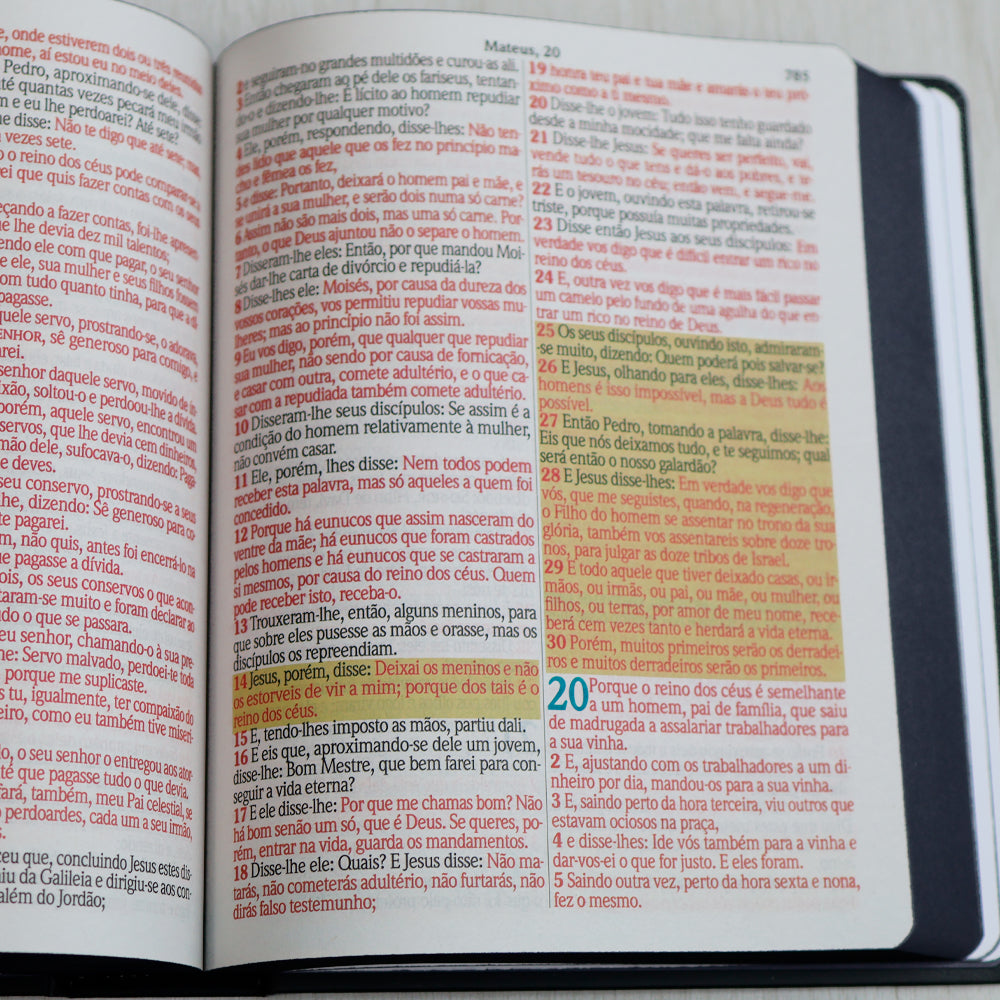 e, onde estiverem dois ou três reunidos
nome, aí estou eu no meio deles.
Pedro, aproximando-se dele, disse:
até quantas vezes pecará meu irmão
m e eu lhe perdoarei? Até sete?
que disse: Não te digo que até sete; mas,
a vezes sete.
o o reino dos céus pode comparar-se a
rei que quis fazer contas com os seus
eçando a fazer contas, foi-lhe apresen
e lhe devia dez mil talentos;
endo ele com que pagar, o seu senhor
e ele, sua mulher e seus filhos fossem
om tudo quanto tinha, para que a dí
pagasse.
quele servo, prostrando-se, o adorava,
SENHOR, sê generoso para comigo, e
arei.
senhor daquele servo, movido de ín
ixão, soltou-o e perdoou-lhe a dívida.
porém, aquele servo, encontrou um
servos, que lhe devia cem dinheiros,
mão dele, sufocava-o, dizendo: Paga-
e deves.
seu conservo, prostrando-se a seus
lhe, dizendo: Sê generoso para co-
te pagarei.
m, não quis, antes foi encerrá-lo na
e pagasse a dívida.
ois, os seus conservos o que acon-
taram-se muito e foram declarar ao
udo o que se passara.
eu senhor, chamando-o à sua pre-
he: Servo malvado, perdoei-te toda
porque me suplicaste.
s tu, igualmente, ter compaixão do
eiro, como eu também tive miseri-
o, o seu senhor o entregou aos ator-
té que pagasse tudo o que devia.
fará, também, meu Pai celestial, se
perdoardes, cada um a seu irmão,
s.
ceu que, concluindo Jesus estes dis-
iu da Galileia e dirigiu-se aos con-
além do Jordão;
Mateus, 20
785
2 e seguiram-no grandes multidões e curou-as ali.
3 Então chegaram ao pé dele os fariseus, tentan-
do-o e dizendo-lhe: É lícito ao homem repudiar
sua mulher por qualquer motivo?
4 Ele, porém, respondendo, disse-lhes: Não ten-
des lido que aquele que os fez no princípio ma-
cho e fêmea os fez,
5 e disse: Portanto, deixará o homem pai e mãe, e
se unirá a sua mulher, e serão dois numa só carne?
6 Assim não são mais dois, mas uma só carne. Por-
tanto, o que Deus ajuntou não o separe o homem.
7 Disseram-lhe eles: Então, por que mandou Moi-
sés dar-lhe carta de divórcio e repudiá-la?
8 Disse-lhes ele: Moisés, por causa da dureza dos
vossos corações, vos permitiu repudiar vossas mu-
lheres; mas ao princípio não foi assim.
9 Eu vos digo, porém, que qualquer que repudiar
sua mulher, não sendo por causa de fornicação,
e casar com outra, comete adultério, e o que ca-
sar com a repudiada também comete adultério.
10 Disseram-lhe seus discípulos: Se assim é a
condição do homem relativamente à mulher,
não convém casar.
11 Ele, porém, lhes disse: Nem todos podem
receber esta palavra, mas só aqueles a quem foi
concedido.
12 Porque há eunucos que assim nasceram do
ventre da mãe; há eunucos que foram castrados
pelos homens e há eunucos que se castraram a
si mesmos, por causa do reino dos céus. Quem
pode receber isto, receba-o.
13 Trouxeram-lhe, então, alguns meninos, para
que sobre eles pusesse as mãos e orasse, mas os
discípulos os repreendiam.
14 Jesus, porém, disse: Deixai os meninos e não
os estorveis de vir a mim; porque dos tais é o
reino dos céus.
15 E, tendo-lhes imposto as mãos, partiu dali.
16 E eis que, aproximando-se dele um jovem,
disse-lhe: Bom Mestre, que bem farei para con-
seguir a vida eterna?
17 E ele disse-lhe: Por que me chamas bom? Não
há bom senão um só, que é Deus. Se queres, po-
rém, entrar na vida, guarda os mandamentos.
18 Disse-lhe ele: Quais? E Jesus disse: Não ma-
tarás, não cometerás adultério, não furtarás, não
dirás falso testemunho;
19 honra teu pai e tua mãe e amarás o teu pró-
ximo como a ti mesmo.
20 Disse-lhe o jovem: Tudo isso tenho guardado
desde a minha mocidade; que me falta ainda?
21 Disse-lhe Jesus: Se queres ser perfeito, vai,
vende tudo o que tens e dá-o aos pobres, e te-
rás um tesouro no céu; então vem, e segue-me.
22 E o jovem, ouvindo esta palavra, retirou-se
triste, porque possuía muitas propriedades.
23 Disse então Jesus aos seus discípulos: Em
verdade vos digo que é difícil entrar um rico no
reino dos céus.
24 E, outra vez vos digo que é mais fácil passar
um camelo pelo fundo de uma agulha do que en-
trar um rico no reino de Deus.
25 Os seus discípulos, ouvindo isto, admiraram-
-se muito, dizendo: Quem poderá pois salvar-se?
26 E Jesus, olhando para eles, disse-lhes: Aos
homens é isso impossível, mas a Deus tudo é
possível.
27 Então Pedro, tomando a palavra, disse-lhe:
Eis que nós deixamos tudo, e te seguimos; qual
será então o nosso galardão?
28 E Jesus disse-lhes: Em verdade vos digo que
vós, que me seguistes, quando, na regeneração,
o Filho do homem se assentar no trono da sua
glória, também vos assentareis sobre doze tro-
nos, para julgar as doze tribos de Israel.
29 E todo aquele que tiver deixado casas, ou ir-
mãos, ou irmãs, ou pai, ou mãe, ou mulher, ou
filhos, ou terras, por amor de meu nome, rece-
berá cem vezes tanto e herdará a vida eterna.
30 Porém, muitos primeiros serão os derradei-
ros e muitos derradeiros serão os primeiros.
20 Porque o reino dos céus é semelhante
a um homem, pai de família, que saiu
de madrugada a assalariar trabalhadores para
a sua vinha.
2 E, ajustando com os trabalhadores a um di-
nheiro por dia, mandou-os para a sua vinha.
3 E, saindo perto da hora terceira, viu outros que
estavam ociosos na praça,
4 e disse-lhes: Ide vós também para a vinha e
dar-vos-ei o que for justo. E eles foram.
5 Saindo outra vez, perto da hora sexta e nona,
fez o mesmo.